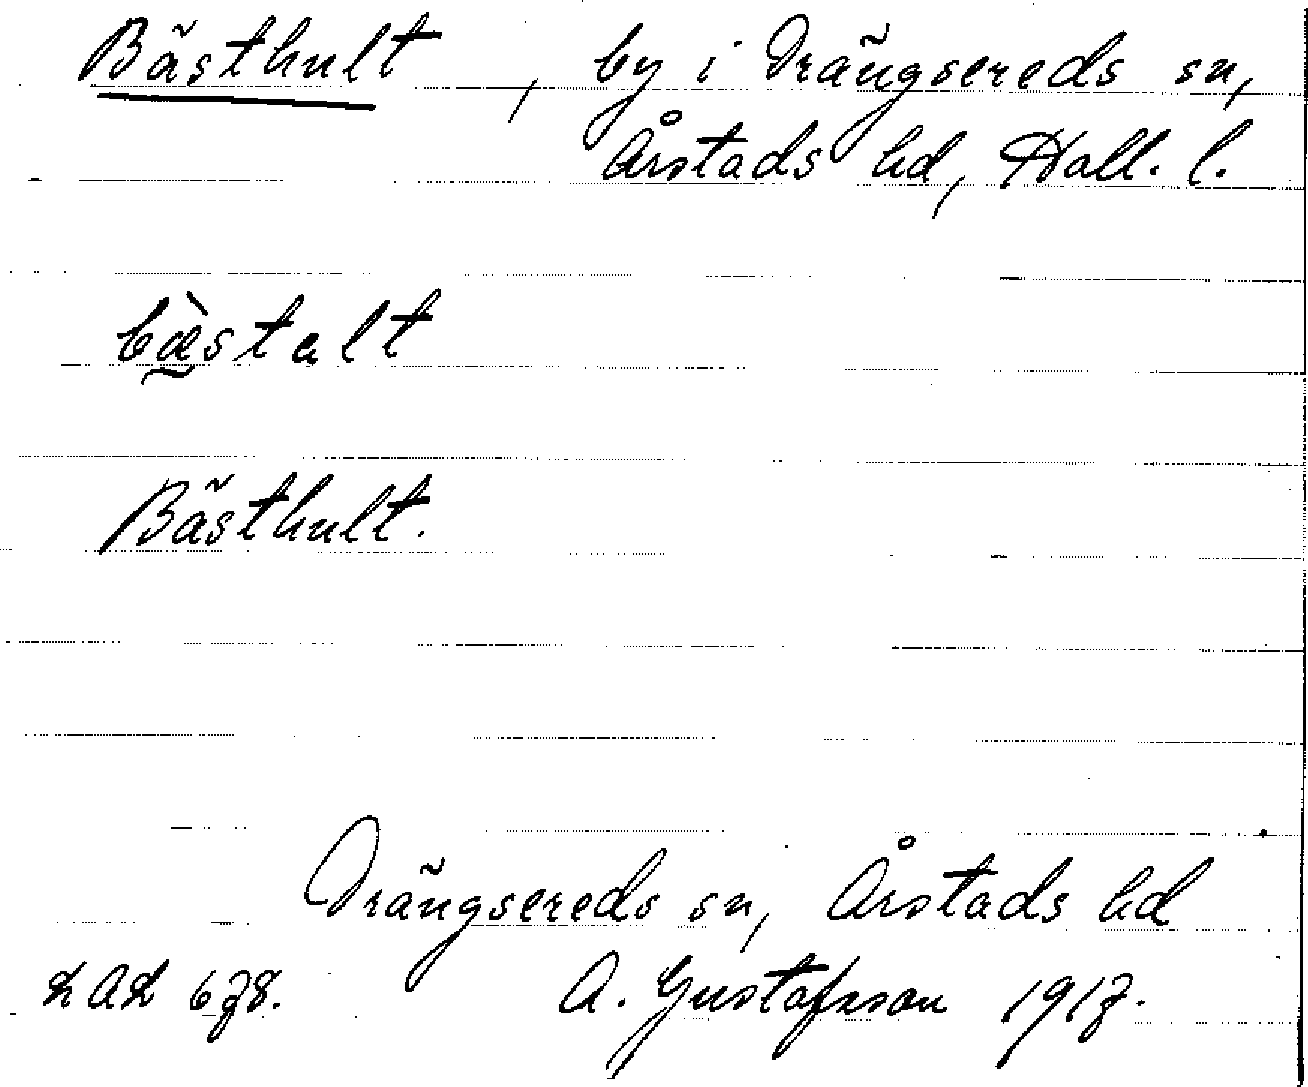 Bästhult, by i Drängsereds sn,
Årstads hd, Hall. l.
bæ̰̀stalt
Bästhult.
Drängsereds sn, Årstads hd
LAL 678. A. Gustafsson 1917.